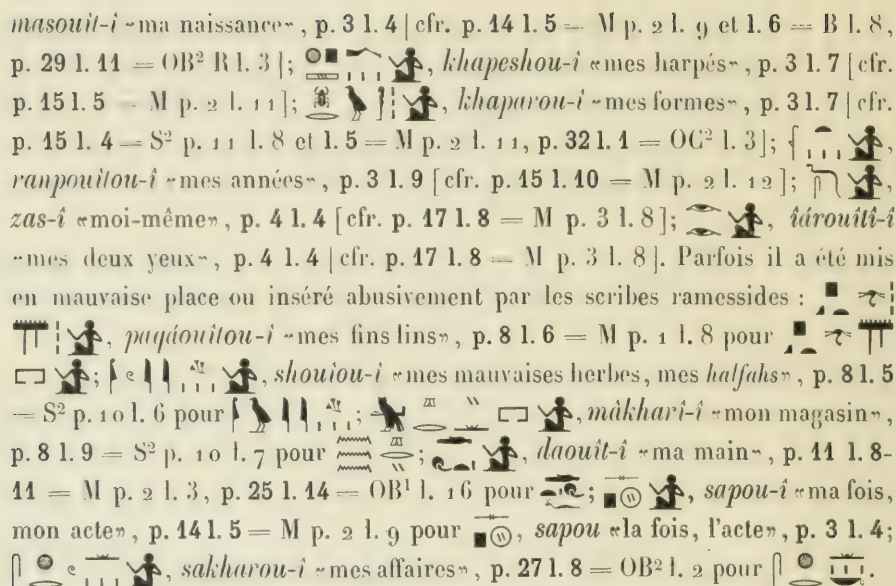 masouìt-î «ma naissance», p. 3 l. 4 [cfr. p. 14 l. 5 = M p. 2 l. 9 et l. 6 = B l. 8,
p. 29 l. 11 = OB² R l. 3]; , khapeshou-î «mes harpés», p. 3 l. 7 [cfr.
p. 15 l. 5 = M p. 2 l. 11]; , khaparou-î «mes formes», p. 3 l. 7 [cfr.
p. 15 l. 4 = S² p. 11 l. 8 et l. 5 = M p. 2 l. 11, p. 32 l. 1 = OC² l. 3]; ,
ranpouîtou-î «mes années», p. 3 l. 9 [cfr. p. 15 l. 10 = M p. 2 l. 12]; ,
zas-î «moi-même», p. 4 l. 4 [cfr. p. 17 l. 8 = M p. 3 l. 8]; , îárouîtî-î
«mes deux yeux», p. 4 l. 4 [cfr. p. 17 l. 8 = M p. 3 l. 8]. Parfois il a été mis
en mauvaise place ou inséré abusivement par les scribes ramessides :
, payáouîtou-î «mes fins lins», p. 8 l. 6 = M p. 1 l. 8 pour
; , shouîou-î «mes mauvaises herbes, mes halfahs», p. 8 l. 5
= S² p. 10 l. 6 pour ; , mâkharî-î «mon magasin»,
p. 8 l. 9 = S² p. 10 l. 7 pour ; , daouît-î «ma main», p. 11 l. 8-
11 = M p. 2 l. 3, p. 25 l. 14 = OB¹ l. 16 pour ; , sapou-î «ma fois,
mon acte», p. 14 l. 5 = M p. 2 l. 9 pour , sapou «la fois, l'acte», p. 3 l. 4;
, sakharou-î «mes affaires», p. 27 l. 8 = OB² l. 2 pour .